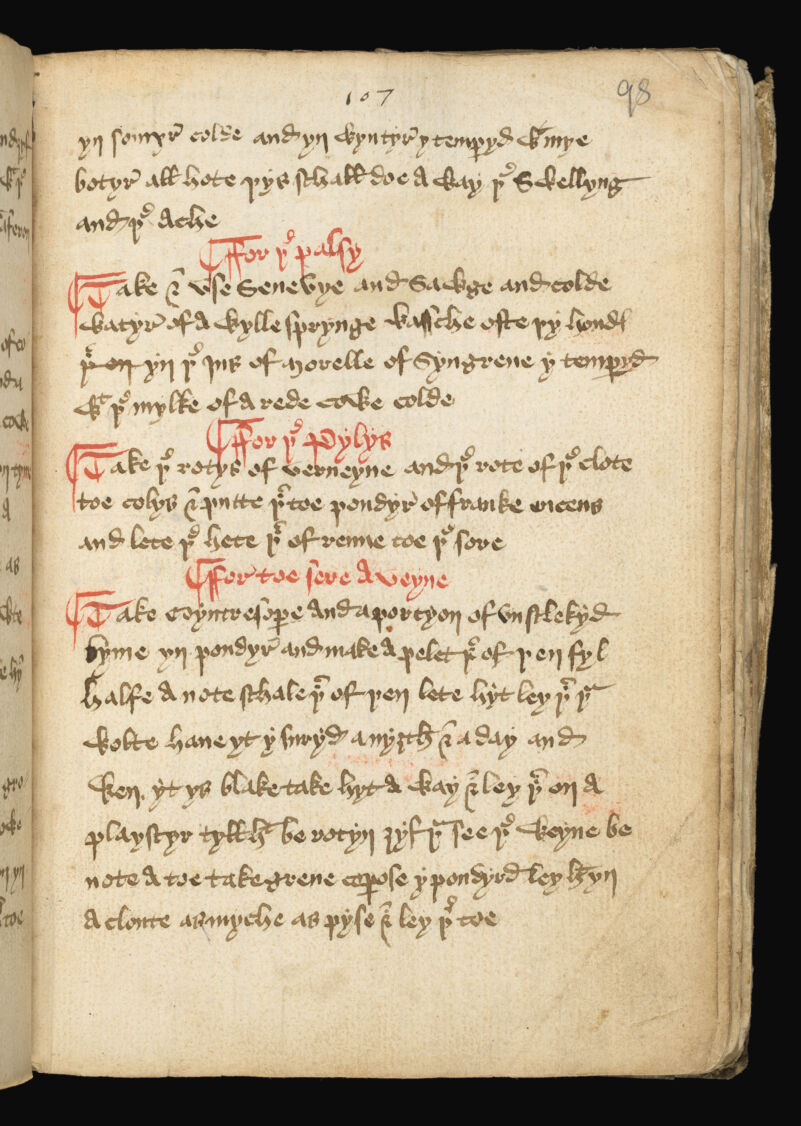 107
98
yn somyr colde and yn wyntyr y tempyd wt mye
botyr all hote þys schall doe a way þe swellyng
and þe ache
For þe palsy
Take & vse Senevye and Sawge and colde
watyr of a wylle sprynge wassche ofte þy hond
þer on yn þe jus of morelle of Syngrene y tempyd
wt þe mylke of a rede cowe colde
For þe Pylys
Take þe rotys of verveyne and þe rote of þe clote
toe colys & putte þer toe poudyr of franke encens
and lete þe hete þer of renne toe þe sore
For toe sere a veyne
Take Coyntresope and a porcyon of vnsclekyd
lyme yn poudyr and make a pelet þer of þen fyl
halfe a note schale þer of þen lete hyt ley þer þt
wolte haue yt y sered a nyȝth & a day and
wen yt ys blake take hyt a way & ley þer on a
playstyr tyll ht be rotyn ȝyf þt see þe veyne be
note a toe take grene copose y poudyrd ley ht yn
a cloute as myche as pyse & ley þer toe